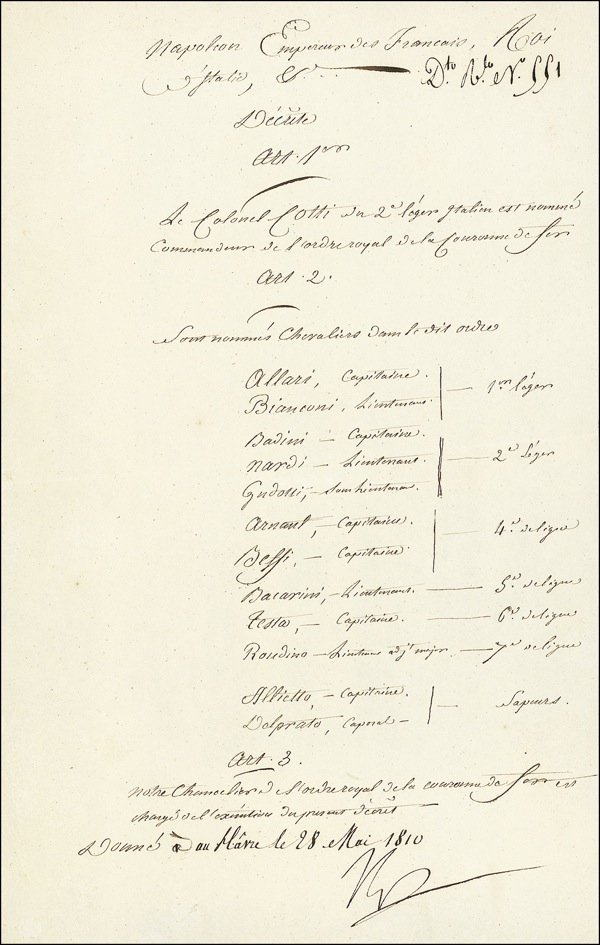 Napoleon Empereur des Francais, Roi
d'Italie, &ca Dto Rle No 551
Décrète
Art. 1er
Le Colonel Cotti du 2e léger Italien est nommé
Commandeur de l'ordre royal de la Couronne de fer
Art. 2.
Sont nommés Chevaliers dans le dit ordre
Allari, Capitaine. — 1er léger
Bianconi, Lieutenant.
Badini — Capitaine.
Nardi — Lieutenant. — 2e léger
Gudotti, — Sous Lieutenant
Arnaut, — Capitaine. — 4e de ligne
Bessi, — Capitaine
Bacarini, — Lieutenant. — 5e de ligne
Testa, — Capitaine. — 6e de ligne
Roudino — Lieutenant adjt major. — 7e de ligne
Allietto, — Capitaine. — Sapeurs.
Delprato, Caporal —
Art. 3.
Notre Chancelier de l'ordre royal de la couronne de fer est
chargé de l'exécution du present décret
Donné au Hâvre le 28 Mai 1810